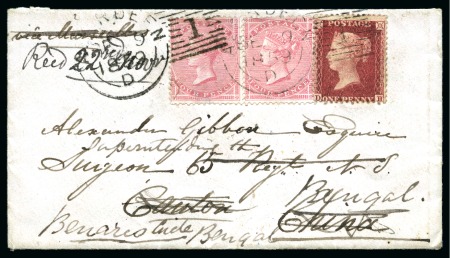 via Marseilles
Recd 22nd Novr
ABERDEEN
1
D
FOUR PENCE
POSTAGE
ONE PENNY
Alexander Gibbon Esquire
Superintending
Surgeon 65 Regt N. I.
Canton Bengal
China
Benares Bengal